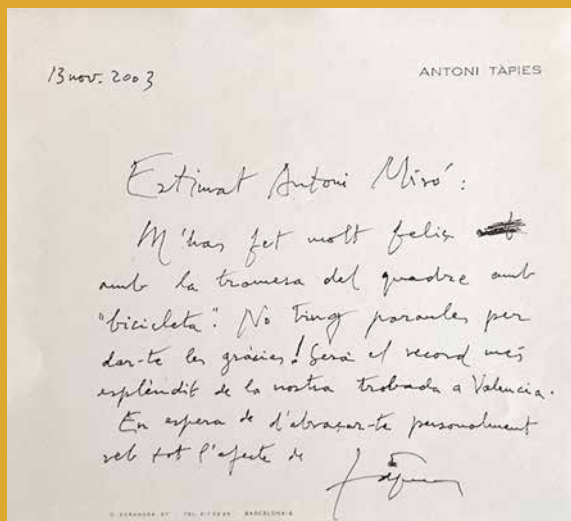 13 nov. 2003
ANTONI TÀPIES
Estimat Antoni Miró:
M'has fet molt feliç
amb la tramesa del quadre amb
"bicicleta". No tinc paraules per
dar-te les gràcies! Serà el record més
esplèndit de la nostra trobada a Valencia.
En espera de d'abraçar-te personalment
reb tot l'afecte de
Tàpies
BARCELONA-6